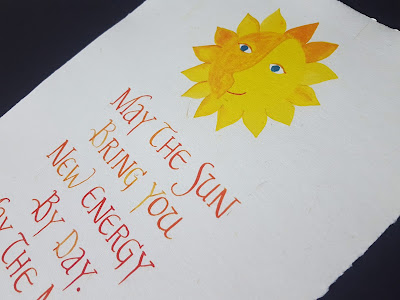 MAY THE SUN
BRING YOU
NEW ENERGY
BY DAY.
THE